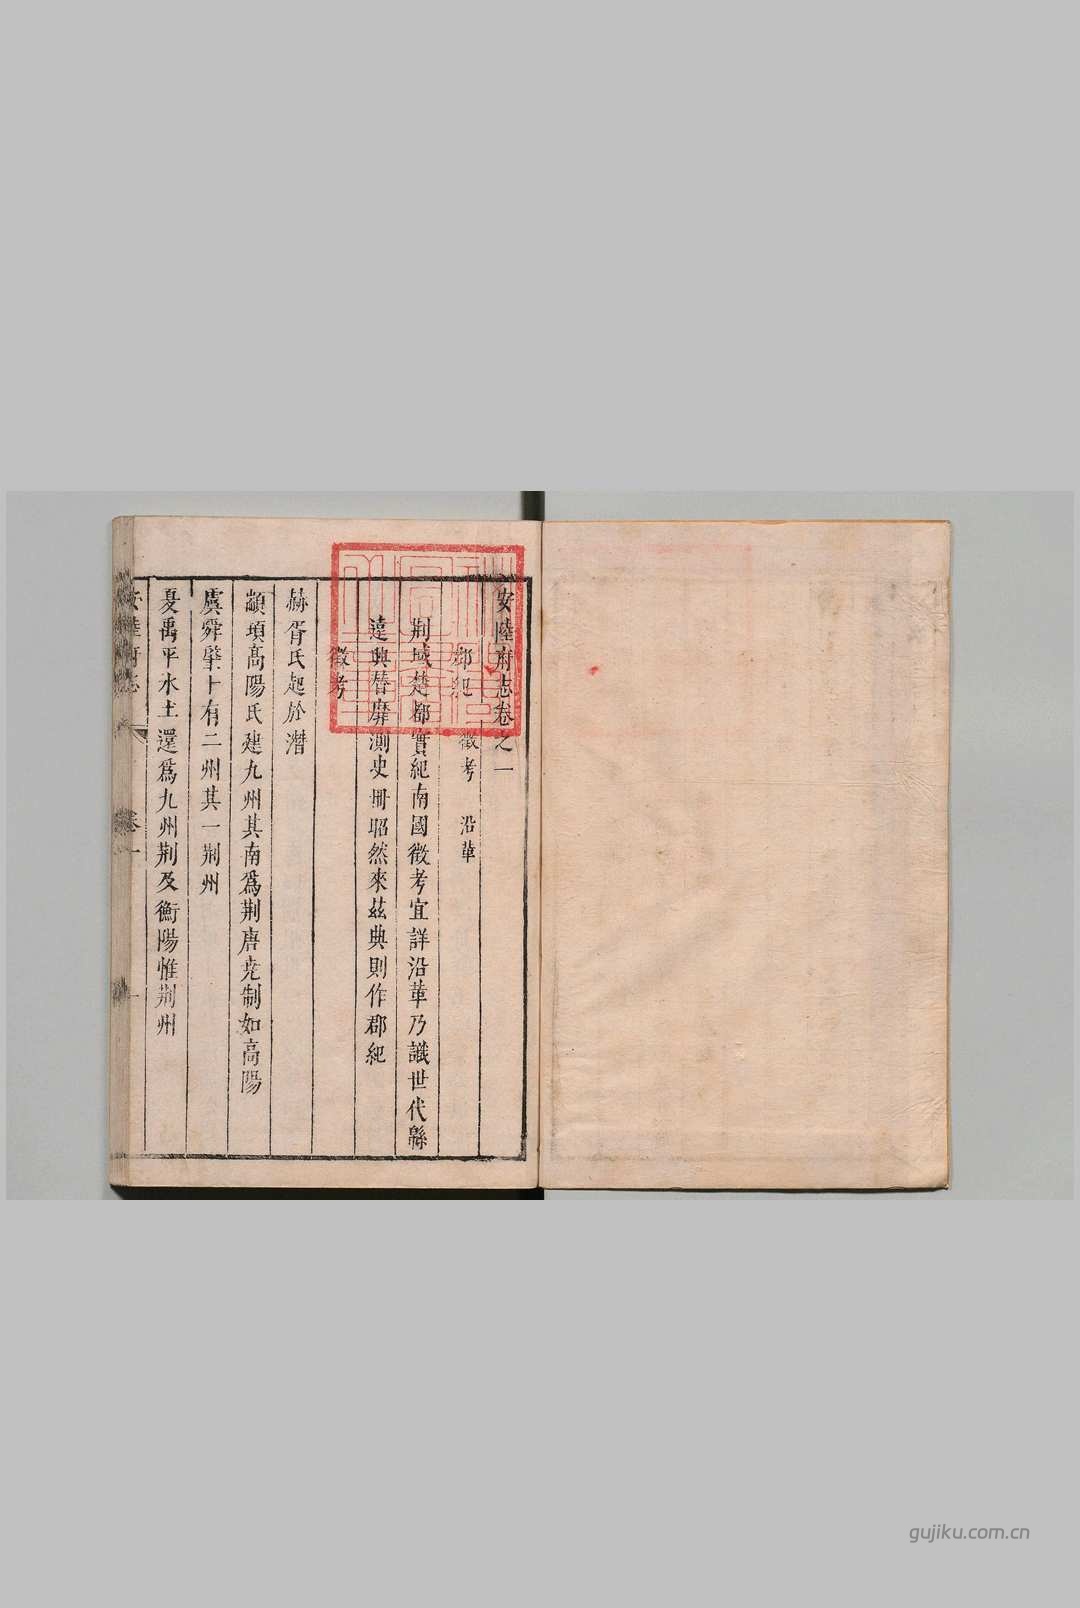 安陸府志卷之一
郡紀 徵考 沿革
荆域楚都實紀南國徵考宜詳沿革乃識世代緜
遠興替靡測史冊昭然來茲典則作郡紀
徵考
赫胥氏起於潛
顓頊高陽氏建九州其南爲荆唐堯制如高陽
虞舜肇十有二州其一荆州
夏禹平水土還爲九州荆及衡陽惟荆州
安陸府志 卷一 一
gujiku.com.cn